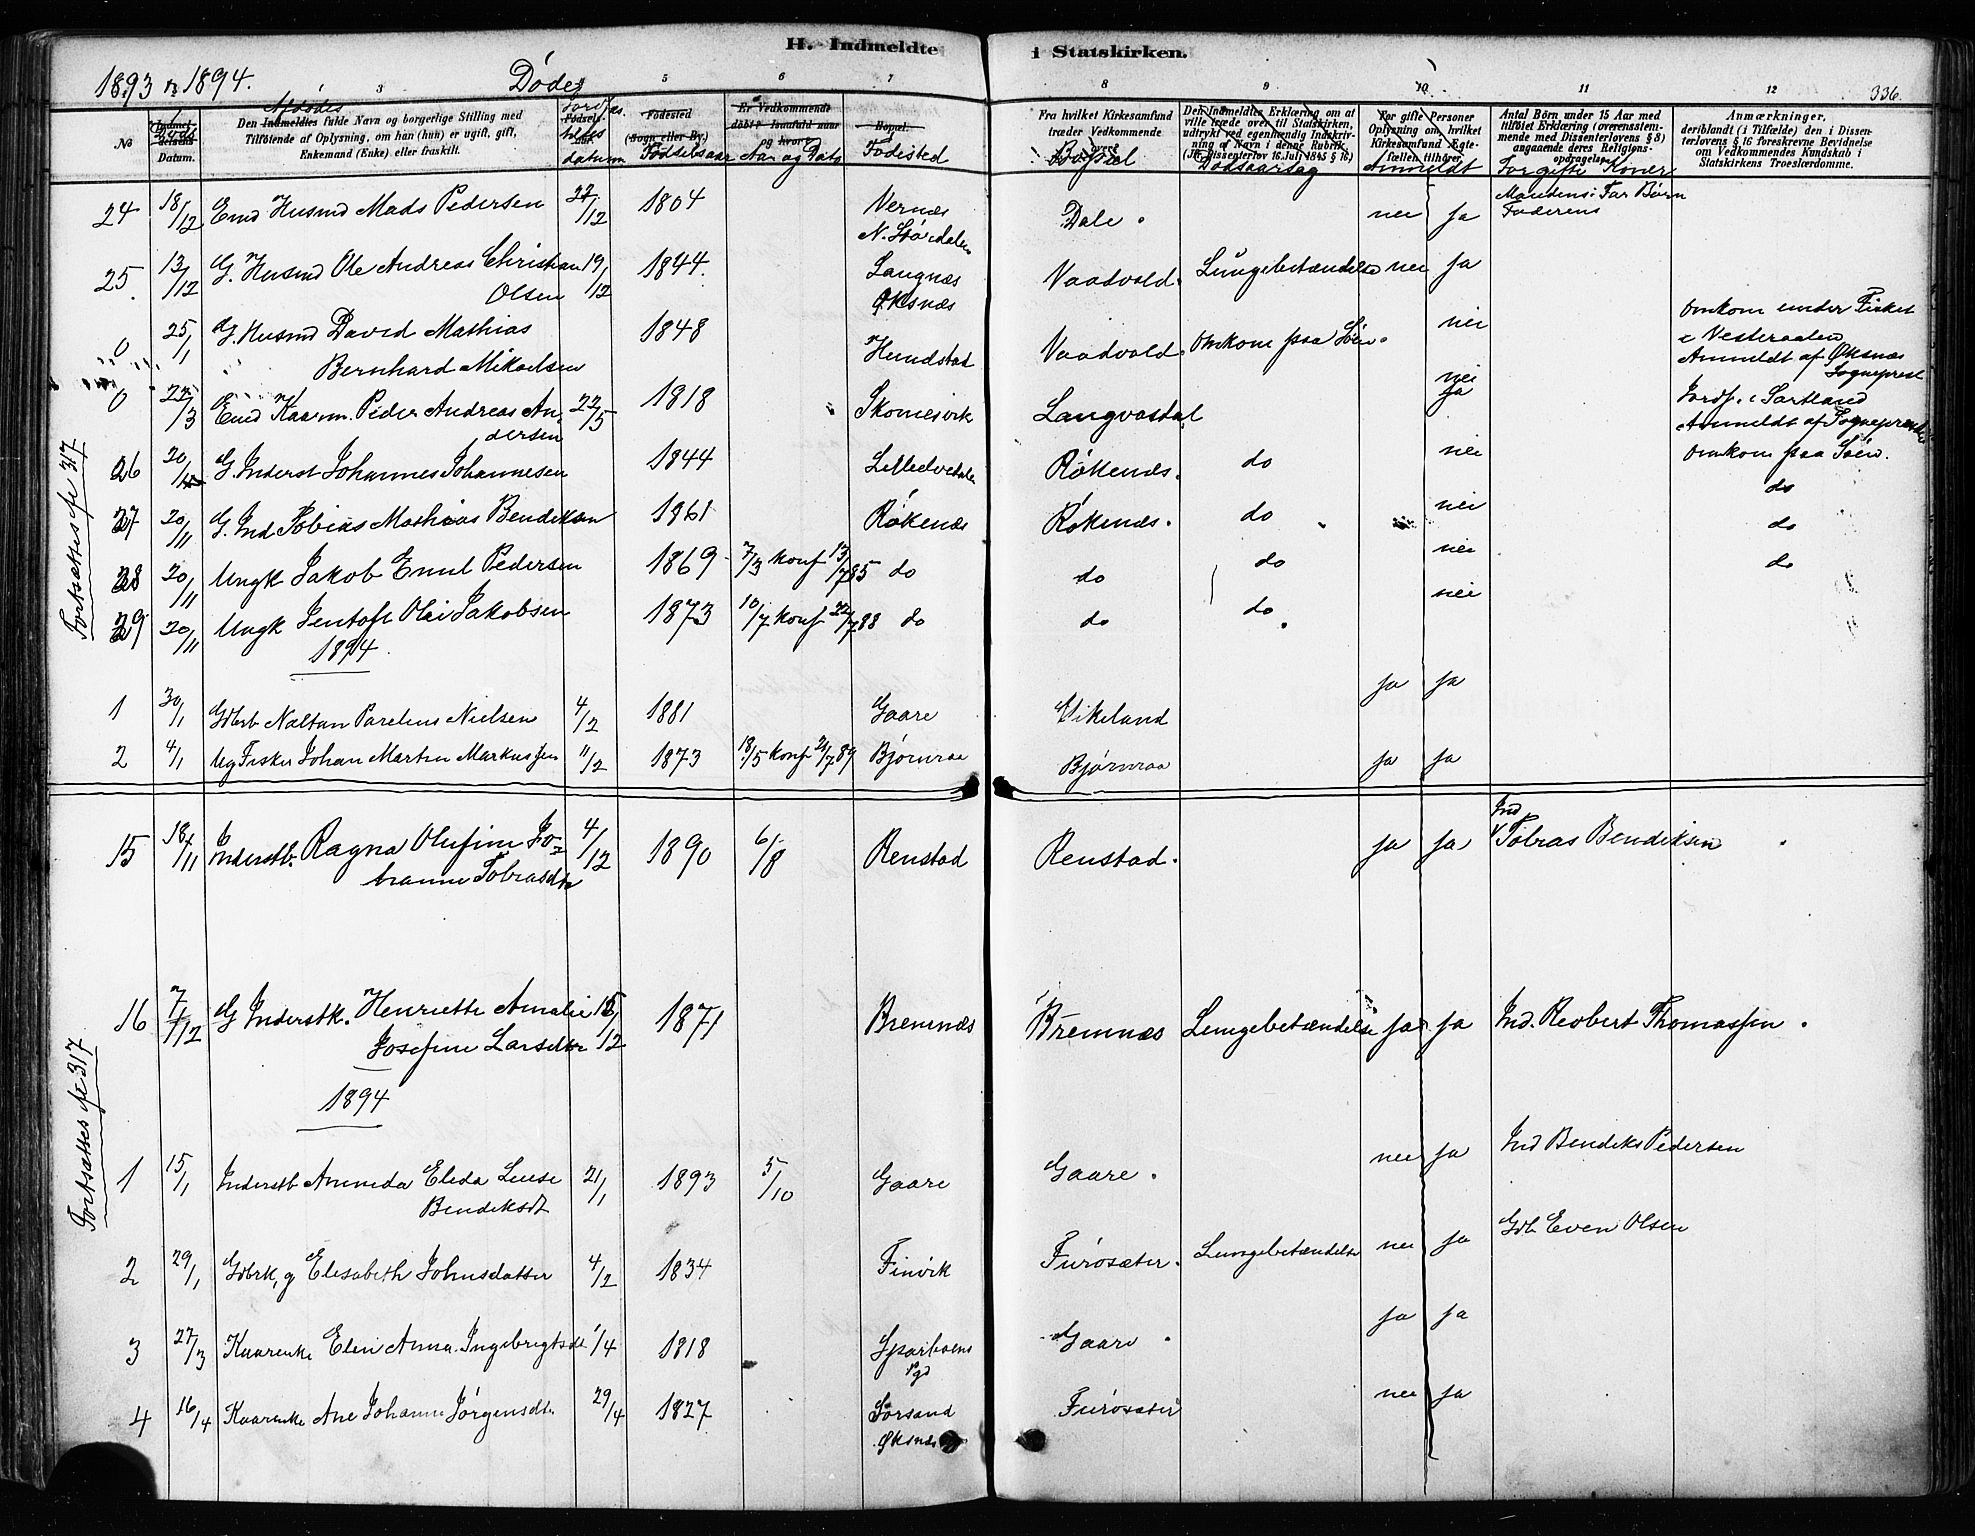 H. Indmeldte i Statskirken.
1893 – 1894. Døde
3 5 6 7 8 9 10 11 12 336.
No
Datum.
Afdødes
Den Indmeldtes fulde Navn og borgerlige Stilling med
Tilføiende af Oplysning, om han (hun) er ugift, gift,
Enkemand (Enke) eller fraskilt.
datum
Fødested
(Sogn eller By.)
Fødselsaar
Er Vedkommende
døbt? Isaafald naar
og hvor?
Aar og Dato
Bopæl.
Fødested
Fra hvilket Kirkesamfund
træder Vedkommende
over?
Bopæl
Den Indmeldtes Erklæring om at
ville træde over til Statskirken,
udtrykt ved egenhændig Indskriv-
ning af Navn i denne Rubrik.
(Jfr. Dissenterlov 16. Juli 1845 § 16)
Dødsaarsag
For gifte Personer
Oplysning om, hvilket
Kirkesamfund Ægte-
fællen tilhører.
Anmeldt
Antal Børn under 15 Aar med
tilføiet Erklæring (overensstem-
mende med Dissenterlovens § 8)
angaaende deres Religions-
opdragelse.
For gifte Koner
Mandens: For Børn
Faderens
Anmærkninger,
deriblandt (i Tilfælde) den i Dissen-
terlovens § 16 foreskrevne Bevidnelse
om Vedkommendes Kundskab i
Statskirkens Troeslærdomme.
24 18/12 Emd Husmd Mads Pedersen 27/12 1804 Vernæs Dale. nei ja
N. Størdalen
25 13/12 G. Husmd Ole Andreas Christian 19/12 1844. Langnæs Vaadvold. Lungebetændelse nei ja
Olsen Øksnæs
0 25/1 G. Husmd David Mathias 1848 Hundstad Vaadvold. Omkom paa Søen. nei Omkom under Fisket
Bernhard Mikaelsen i Vesteraalen
Anmeldt af Øksnæs
Sogneprest
0 22/3 Emd Kaarm. Peder Andreas An 22/5 1818 Skomesvik Langvasdal nei ja Jordf. i Sortland
dersen Anmeldt af Sogneprest
26 20/11 G. Inderst Johannes Johannesen 1844 Røkenæs. do nei Omkom paa Søen.
27 20/11 G. Ind Tobias Mathias Bendiksen 1861 Røkenæs Røkenæs. do nei do
28 20/11 Ungk Jakob Emil Pedersen 1869 7/3 konf 13/7 85 do do do nei do
29 20/11 Ungk Jentoft Olai Jakobsen 1873 10/7 konf 22/7 88 do do do nei do
Fortsættes fr 317
1894
1 30/1 Gdbrb Naltan Parelius Nielsen 4/2 1881 Gaare Vikeland ja ja
2 4/1 Ug Fisker Johan Martin Markussen 11/2 1873 18/5 konf 21/7 89 Bjørnraa Bjørnraa ja ja
15 18/11 Inderstb. Ragna Olufine Jo- 4/12 1890 6/8 Renstad Renstad. ja ja Ind
hanne Tobiasdtr Tobias Bendiksen
16 7/12 G Inderstk. Henriette Amalie 15/12 1871 Bremnæs Bremnæs Lungebetændelse ja ja Ind. Reobert Thomassen.
Josefine Larsdtr
Fortsættes fr 317
1894
1 15/1 Inderstb Ammeda Eleda Luise 21/1 1893 5/10 Gaare Gaare. nei ja Ind Bendiks Pedersen
Bendiksdt
2 29/1 Gdbrk, g Elisabeth Johnsdatter 4/2 1834 Finvik Furøsæter. Lungebetændelse nei ja Gdb Even Olsen
3 27/3 Kaarenke Elen Anna Ingebrigtsdt 1/4 1818 Sparboens Gaare. ja ja
Pgd
4 16/4 Kaarenke Ane Johanne Jørgensdt. 29/4 1827 Sørsand Furøsæter nei ja
Øksnæs